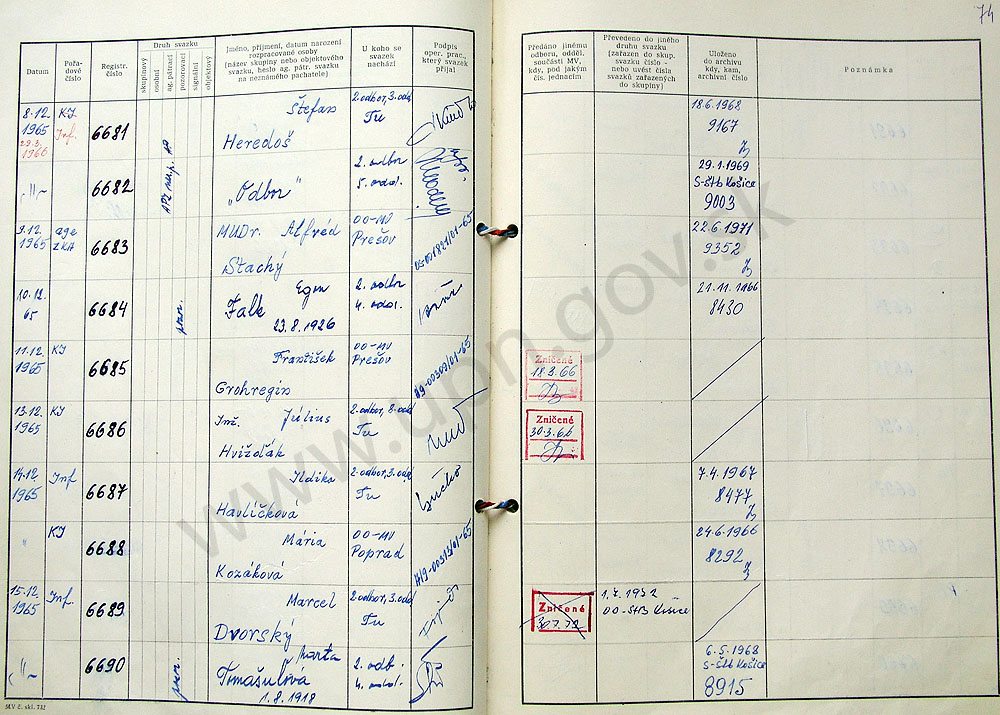 74
Datum
Pořadové číslo
Registr. číslo
Druh svazku
skupinový
osobní
ag. pátrací
pozorovací
signální
objektový
Jméno, příjmení, datum narození
rozpracované osoby
(název skupiny nebo objektového
svazku, heslo ag. pátr. svazku
na neznámého pachatele)
U koho se
svazek
nachází
Podpis
oper. prac.,
který svazek
přijal
Předáno jinému
odboru, odděl.
součásti MV,
kdy, pod jakým
čís. jednacím
Převedeno do jiného
druhu svazku
(zařazen do skup.
svazku číslo -
nebo uvést čísla
svazků zařazených
do skupiny)
Uloženo
do archivu
kdy, kam,
archivní číslo
Poznámka
8.12. 1965 KI Inf. 29.3. 1966 6681 Štefan Heredoš 2.odbor, 3.odd Tu 18.6.1968 9167
-"- 6682 „Odbor" 2. odbor 5. odd. 29.1.1969 S-ŠtB Košice 9003
9.12. 1965 age ZKA 6683 MUDr. Alfréd Stachý OO-MV Prešov 05-001821/01-65 22.6.1971 9352
10.12. 65 6684 pozor. Egon Falk 23.8.1926 2. odbor 4. odd. 21.11.1966 8430
11.12. 1965 KI 6685 František Grohregin OO-MV Prešov Zničené 18.3.66
13.12. 1965 KI 6686 Inž. Július Hvižďák 2.odbor, 8.odd Tu Zničené 30.3.66
14.12. 1965 Inf 6687 Ildika Havlíčková 2.odbor, 3.odd Tu 7.4.1967 8477
" KI 6688 Mária Kozáková OO-MV Poprad 24.6.1966 8292
15.12. 1965 Inf. 6689 Marcel Dvorský 2.odbor, 3.odd Tu Zničené 30.7.72 OO-ŠtB Košice
-"- 6690 pozor. Marta Tomašulová 1.8.1918 2. odb. 4. odd. 6.5.1968 S-štb Košice 8915
MV č. skl. 732
www.upn.gov.sk